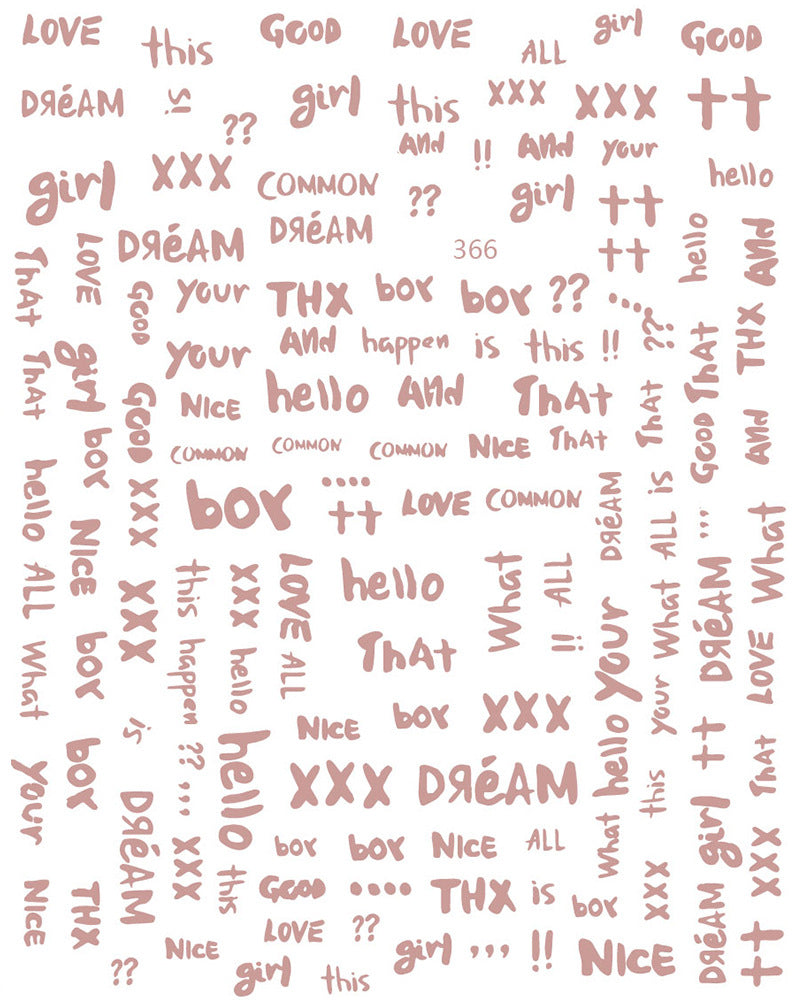 LOVE this GOOD LOVE ALL girl GOOD
DЯéAM is ?? girl this XXX XXX ++
AnD !! AnD your
girl XXX COMMON ?? girl ++ hello
DЯéAM DЯéAM 366 ++
ThAt LOVE GOOD your THX boy boy ?? .... hello AnD
your AnD happen is this !! ?? THX
ThAt girl GOOD NICE hello AnD ThAt ThAt GOOD ThAt AnD
COMMON COMMON COMMON NICE ThAt
hello boy XXX boy .... ++ LOVE COMMON DЯéAM ALL is ,,, What
ALL NICE XXX this XXX LOVE hello What !! ALL your What DЯéAM
What boy happen hello ALL ThAt hello your LOVE
is ?? hello NICE boy XXX ++ ThAt
your boy DЯéAM ,,, XXX DЯéAM What this girl XXX
XXX boy boy NICE ALL
NICE THX this GOOD .... THX is boy XXX DЯéAM ++
LOVE ??
NICE girl ,,, !! NICE
?? girl this